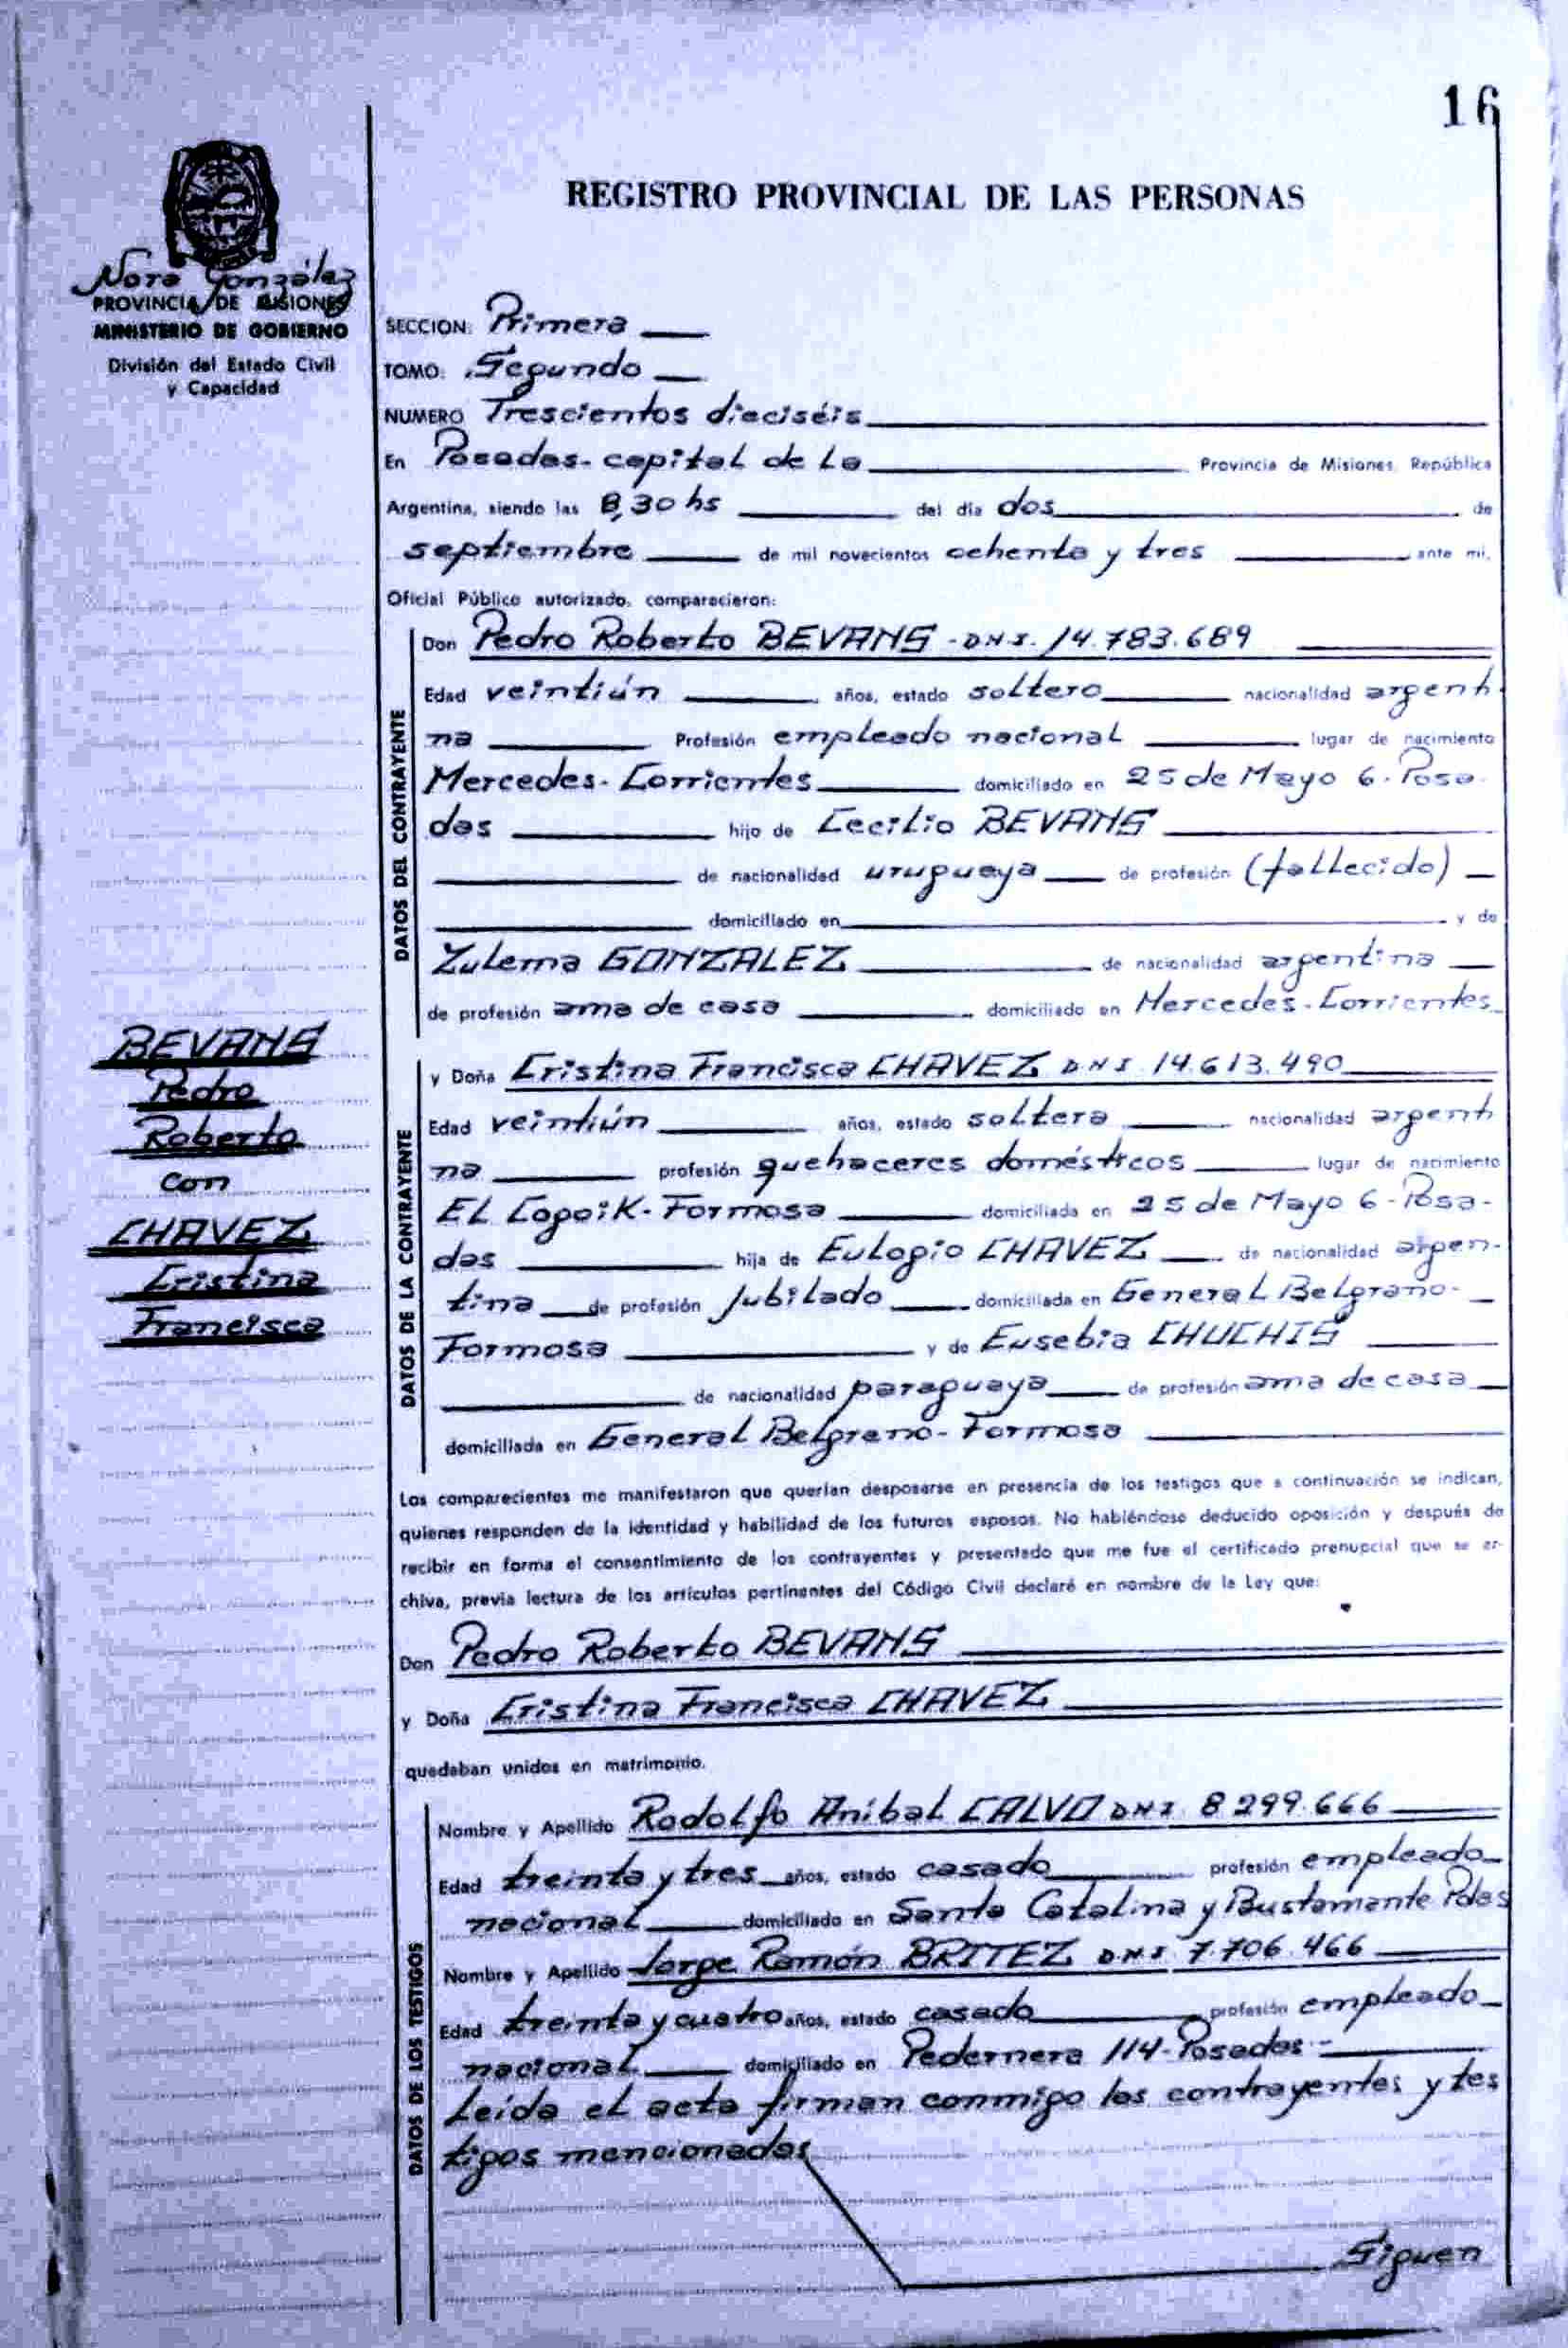 16
REGISTRO PROVINCIAL DE LAS PERSONAS
Nora González
PROVINCIA DE MISIONES
MINISTERIO DE GOBIERNO
División del Estado Civil
y Capacidad
SECCION: Primera
TOMO: Segundo
NUMERO Trescientos dieciséis
En Posadas- capital de la Provincia de Misiones, República
Argentina, siendo las 8,30 hs del día dos de
septiembre de mil novecientos ochenta y tres ante mi,
Oficial Público autorizado, comparecieron:
DATOS DEL CONTRAYENTE
Don Pedro Roberto BEVANS - DNI. 14.783.689
Edad veintiún años, estado soltero nacionalidad argenti
na Profesión empleado nacional lugar de nacimiento
Mercedes- Corrientes domiciliado en 25 de Mayo 6- Posa-
das hijo de Cecilio BEVANS
de nacionalidad uruguaya de profesión (fallecido)
domiciliado en y de
Zulema GONZALEZ de nacionalidad argentina
de profesión ama de casa domiciliado en Mercedes- Corrientes
BEVANS
Pedro
Roberto
con
CHAVEZ
Cristina
Francisca
DATOS DE LA CONTRAYENTE
y Doña Cristina Francisca CHAVEZ DNI 14.613.490
Edad veintiún años, estado soltera nacionalidad argenti
na profesión quehaceres domésticos lugar de nacimiento
El Copoik- Formosa domiciliada en 25 de Mayo 6- Posa-
das hija de Eulogio CHAVEZ de nacionalidad argen-
tina de profesión Jubilado domiciliada en General Belgrano-
Formosa y de Eusebia CHUCHIS
de nacionalidad paraguaya de profesión ama de casa
domiciliada en General Belgrano- Formosa
Los comparecientes me manifestaron que querían desposarse en presencia de los testigos que a continuación se indican,
quienes responden de la identidad y habilidad de los futuros esposos. No habiéndose deducido oposición y después de
recibir en forma el consentimiento de los contrayentes y presentado que me fue el certificado prenupcial que se ar-
chiva, previa lectura de los artículos pertinentes del Código Civil declaré en nombre de la Ley que:
Don Pedro Roberto BEVANS
y Doña Cristina Francisca CHAVEZ
quedaban unidos en matrimonio.
DATOS DE LOS TESTIGOS
Nombre y Apellido Rodolfo Aníbal CALVO DNI 8 299.666
Edad treinta y tres años, estado casado profesión empleado
nacional domiciliado en Santa Catalina y Bustamante Pdas
Nombre y Apellido Jorge Ramón BRITEZ DNI 7.706.466
Edad treinta y cuatro años, estado casado profesión empleado
nacional domiciliado en Pedernera 114- Posadas-
Leída el acta firman conmigo los contrayentes y tes
tigos mencionados
Siguen